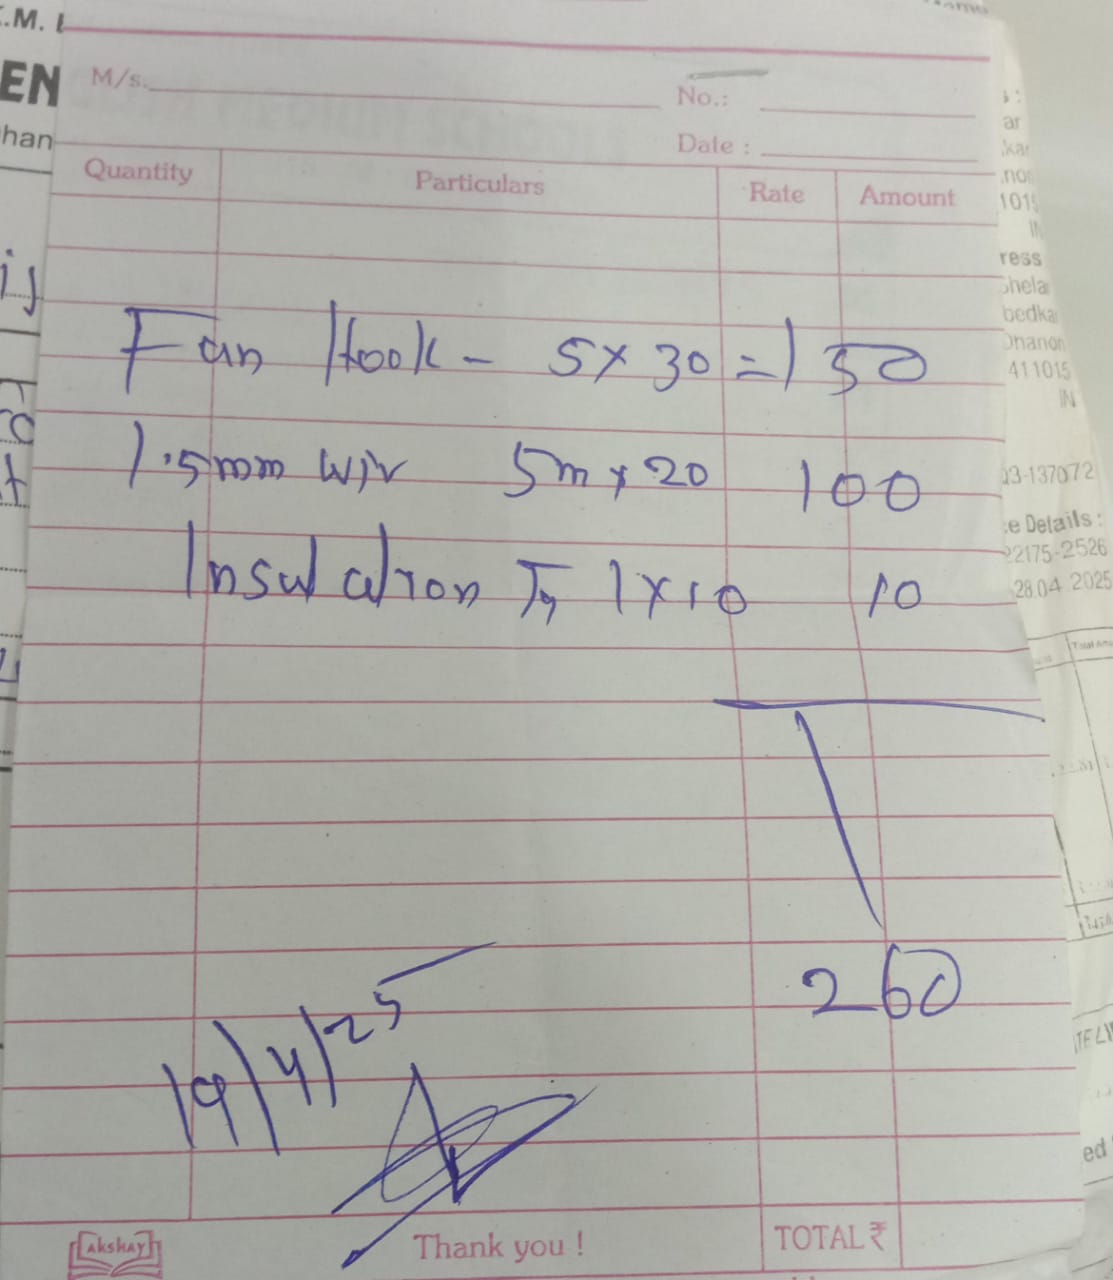 .M.
EN
han
M/s.
No.:
Date :
Quantity Particulars Rate Amount
Fan Hook - 5 x 30 = 150
1.5mm wir 5m x 20 100
Insulation 1 x 10 10
260
19/4/25
AKSHAY
Thank you !
TOTAL ₹
ar
1015
ress
bedka
411015
IN
03-137072
e Details :
22175-2526
28.04.2025
ed